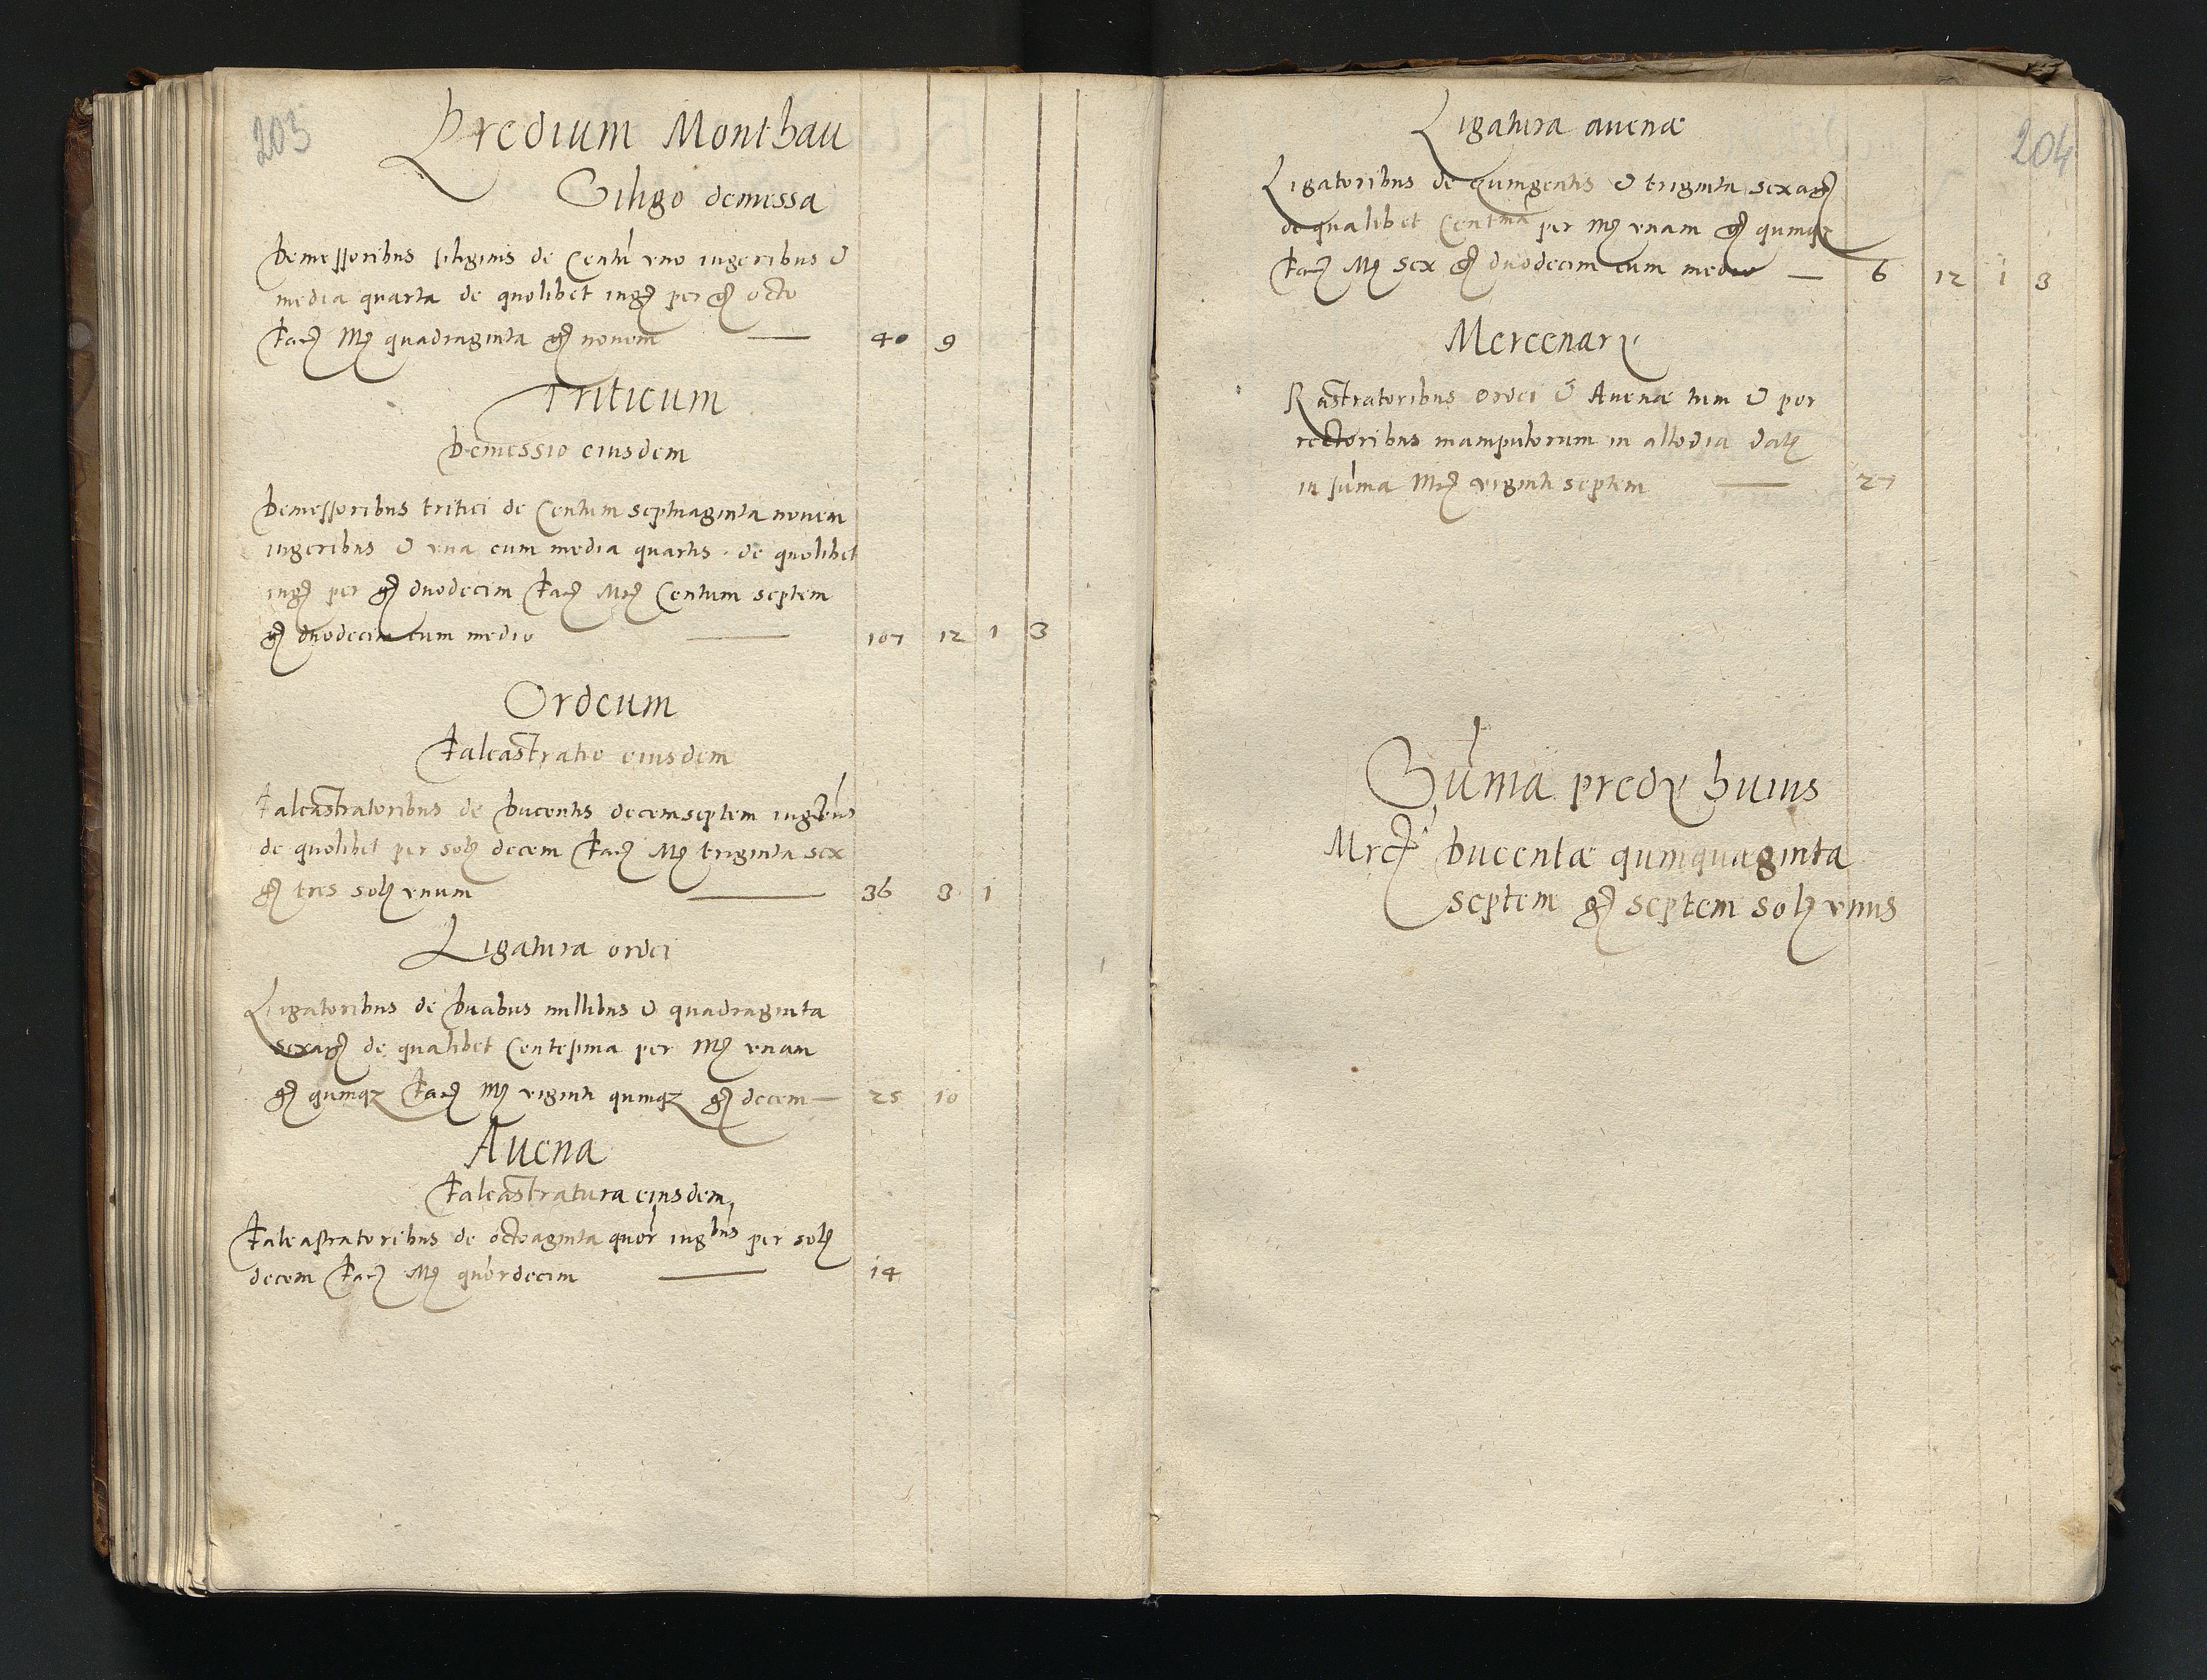 203
Predium Monthau
Siligo demessa
Demessoribus siliginis de Centū uno iugeribus et
media quarta de quolibet iugꝭ per gꝭ octo
facꝭ Mꝭ quadraginta gꝭ novem — 40 9
Triticum
Demessio eiusdem
Demessoribus tritici de Centum septuaginta novem
iugeribus et una cum media quartis. de quolibet
iugꝭ per gꝭ duodecim facꝭ Mrꝭ Centum septem
gꝭ duodecim cum medio — 107 12 1 3
Ordeum
Falcastratio eiusdem
Falcastratoribus de Ducentis decemseptem iugꝭbus
de quolibet per solꝭ decem facꝭ Mꝭ triginta sex
gꝭ tres solꝭ unum — 36 3 1
Ligatura ordei
Ligatoribus de Duabus millibus et quadraginta
sexagꝭ de qualibet Centesima per Mꝭ unam
gꝭ quinqꝫ facꝭ Mꝭ viginti quinqꝫ gꝭ decem — 25 10
Avena
Falcastratura eiusdem
Falcastratoribus de octoaginta quor iugbus per solꝭ
decem facꝭ Mꝭ quordecim — 14
204
Ligatura avenæ
Ligatoribus de quingentis et triginta sexagꝭ
de qualibet Centma per Mꝭ unam gꝭ quinqꝫ
facꝭ Mꝭ sex gꝭ duodecim cum medio — 6 12 1 3
Mercenarÿ
Rastratoribus Ordei et Avenæ tum et por
rectoribus manipulorum in allodia datꝭ
in sūma Mrꝭ viginti septem — 27
Sūma predÿ huius
Mrcꝭ Ducentæ quinquaginta
septem gꝭ septem solꝭ unus